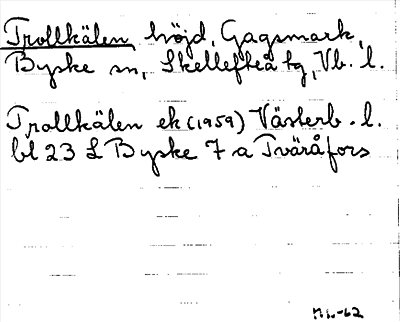 Trollkälen, höjd, Gagsmark,
Byske sn, Skellefteå tg, Vb. l.
Trollkälen ek (1959) Västerb. l.
bl 23 L Byske 7 a Tväråfors